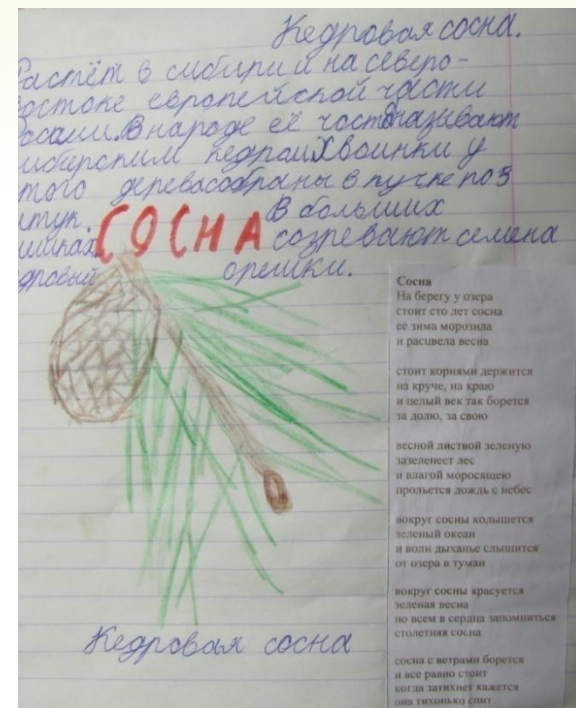 Кедровая сосна.
Растёт в сибири и на северо-
востоке европейской части
. В народе её часто называют
сибирским кедром Хвоинки у
этого дерева собраны в пучке по 5
штук. В больших
шишках созревают семена
кедровый орешки.
СОСНА
Кедровая сосна
Сосна
На берегу у озера
стоит сто лет сосна
ее зима морозила
и расцвела весна
стоит корнями держится
на круче, на краю
и целый век так борется
за долю, за свою
весной листвой зеленую
зазеленеет лес
и влагой моросящею
прольется дождь с небес
вокруг сосны колышется
зеленый океан
и волн дыханье слышится
от озера в туман
вокруг сосны красуется
зеленая весна
но всем в сердца запомниться
столетняя сосна
сосна с ветрами борется
и все равно стоит
когда затихнет кажется
она тихонько спит